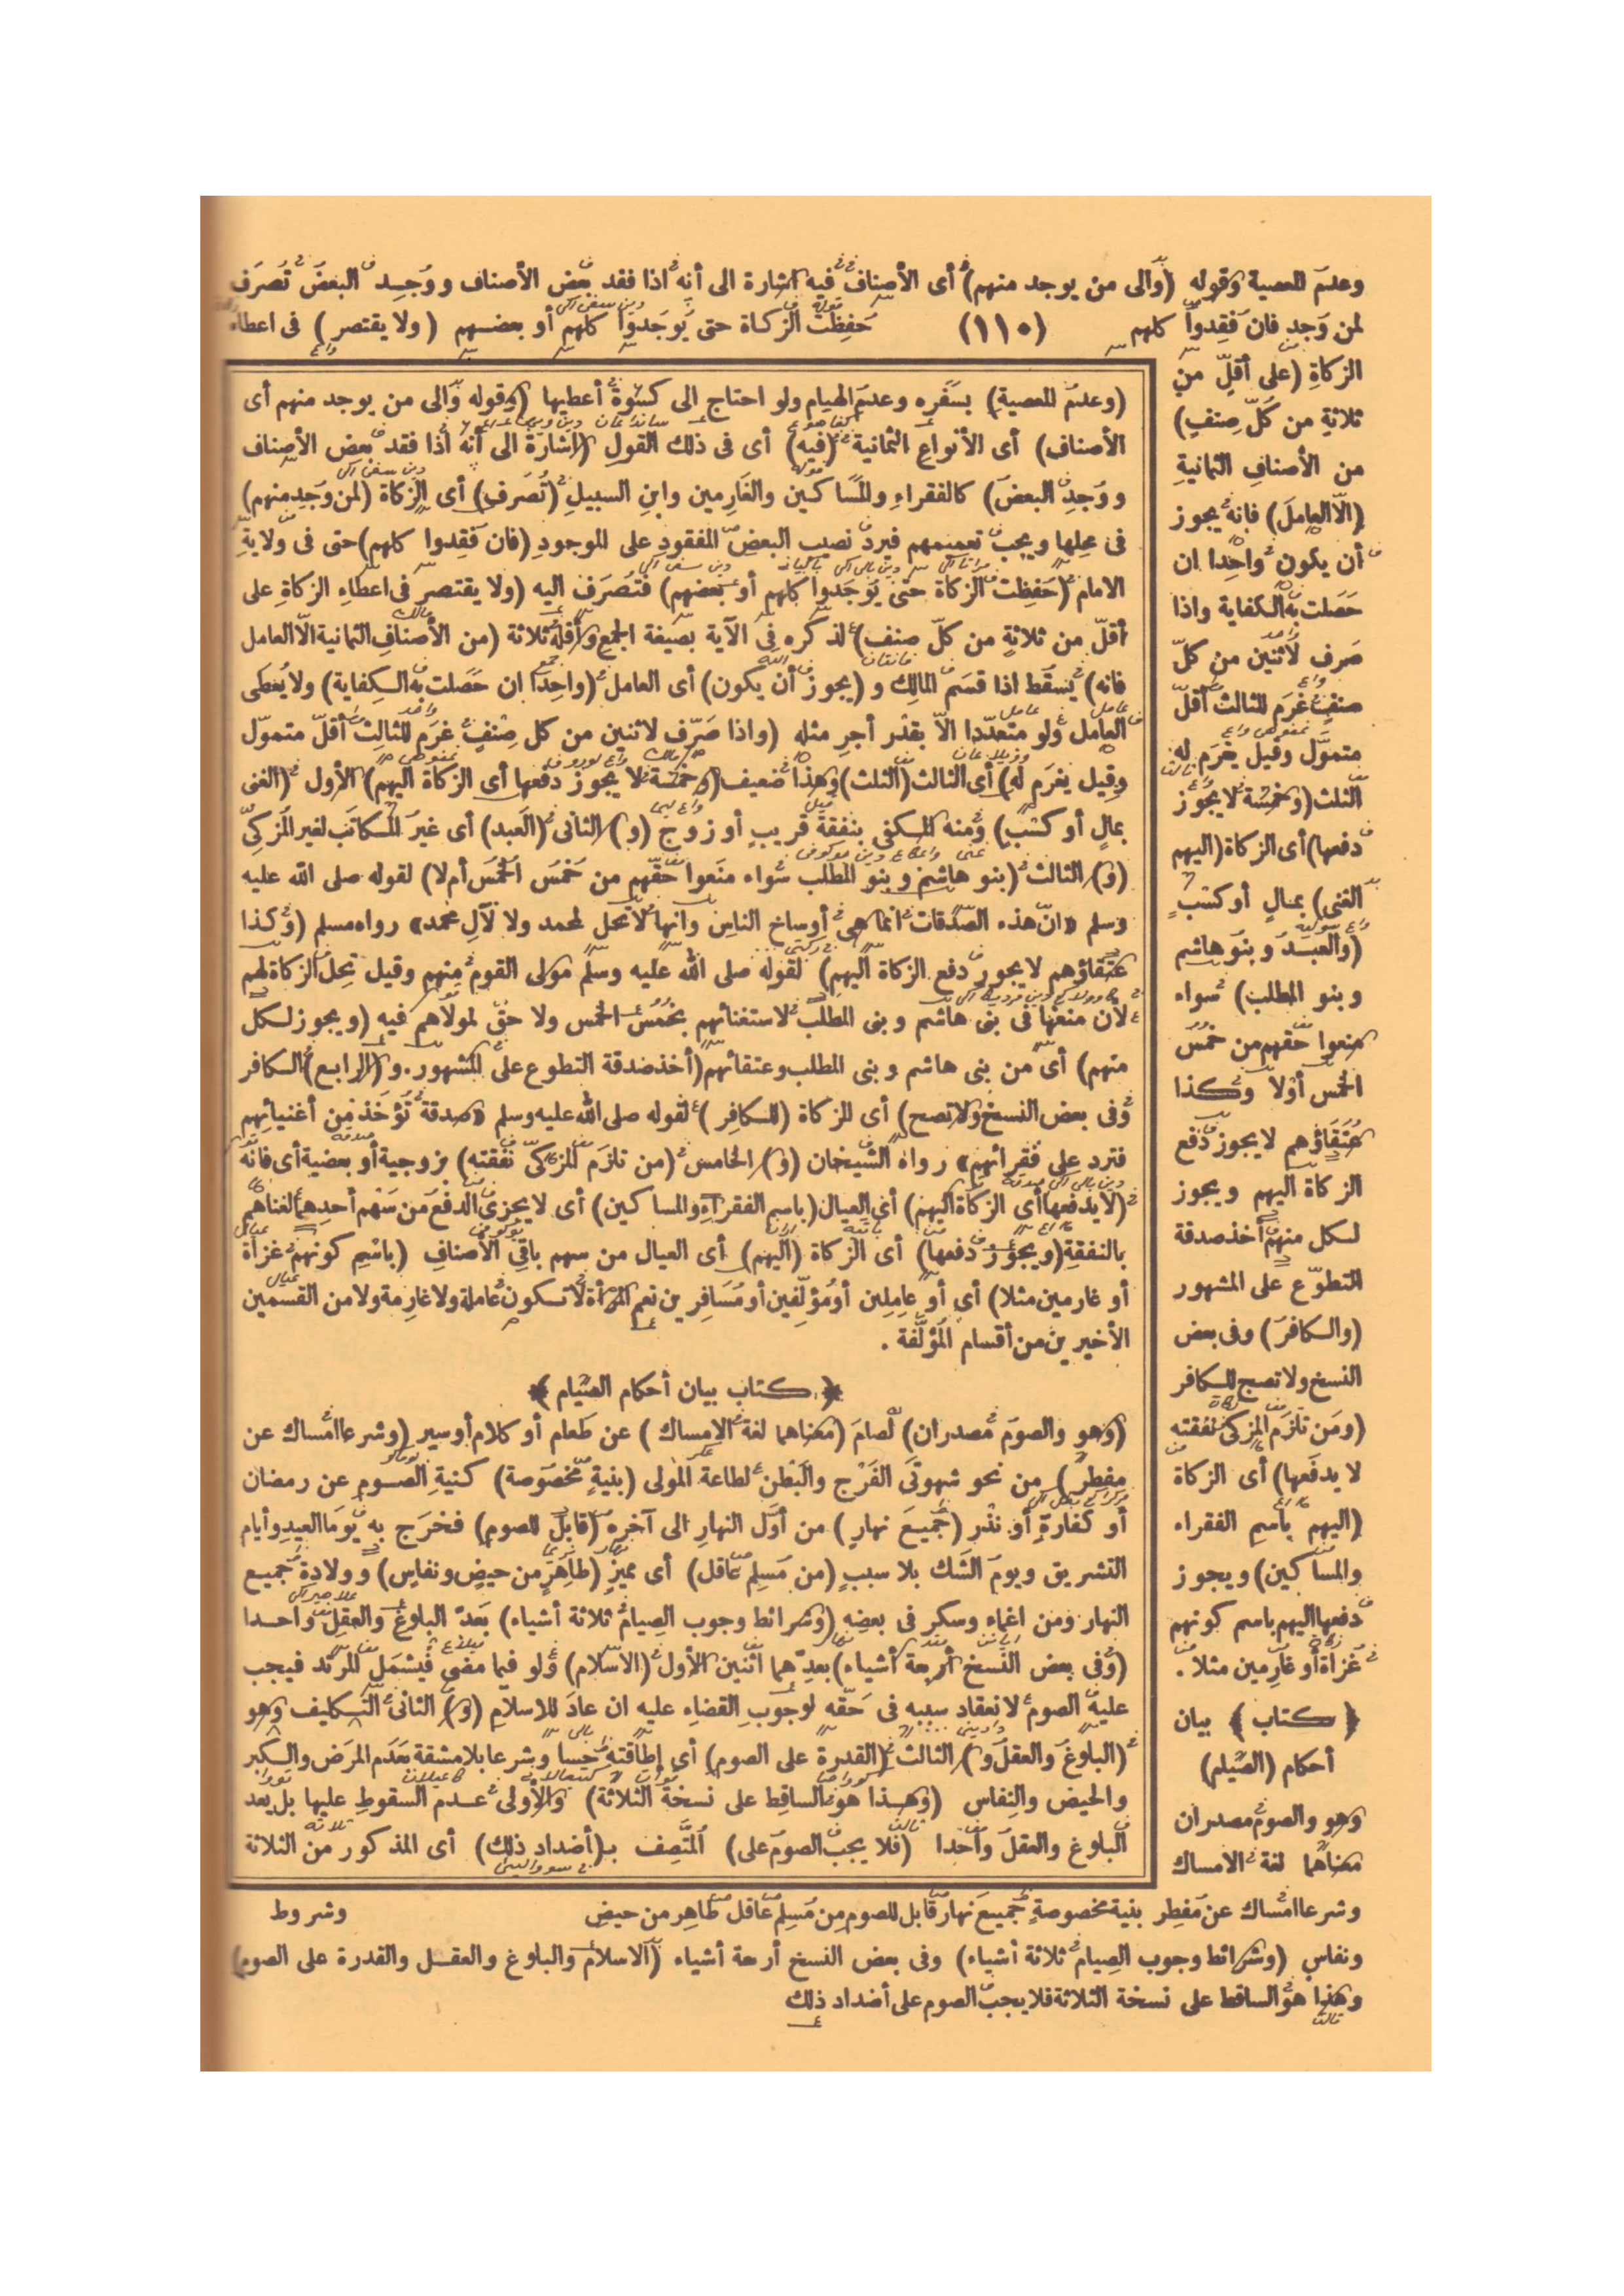 وعدم المعصية وقوله (والى من يوجد منهم) أى الأصناف فيه اشارة الى أنه اذا فقد بعض الأصناف ووجد البعض تصرف
لمن وجد فان فقدوا كلهم (١١٠) حفظت الزكاة حتى يوجدوا كلهم أو بعضهم (ولا يقتصر) فى اعطاء
الزكاة (على أقل من
ثلاثة من كل صنف)
من الأصناف الثمانية
(الا العامل) فانه يجوز
أن يكون واحدا ان
حصلت به الكفاية واذا
صرف لاثنين من كل
صنف غرم للثالث أقل
متمول وقيل يغرم له
الثلث (وخمسة لا يجوز
دفعها) أى الزكاة (اليهم
الغنى) بمال أو كسب
(والعبد وبنو هاشم
وبنو المطلب) سواء
منعوا حقهم من خمس
الخمس أولا وكذا
عتقاؤهم لا يجوز دفع
الزكاة اليهم ويجوز
لكل منهم أخذ صدقة
التطوع على المشهور
(والكافر) وفى بعض
النسخ ولا تصح للكافر
(ومن تلزم المزكى نفقته
لا يدفعها) أى الزكاة
(اليهم باسم الفقراء
والمساكين) ويجوز
دفعها اليهم باسم كونهم
غزاة أو غارمين مثلا .
﴿ كتاب ﴾ بيان
أحكام (الصيام)
وهو والصوم مصدران
معناهما لغة الامساك
(وعدم المعصية) بسفره وعدم الهيام ولو احتاج الى كسوة أعطيها (وقوله والى من يوجد منهم أى
الأصناف) أى الأنواع الثمانية (فيه) أى فى ذلك القول (اشارة الى أنه اذا فقد بعض الأصناف
ووجد البعض) كالفقراء والمساكين والغارمين وابن السبيل (تصرف) أى الزكاة (لمن وجد منهم)
فى محلها ويجب تعميمهم فيرد نصيب البعض المفقود على الموجود (فان فقدوا كلهم) حتى فى ولاية
الامام (حفظت الزكاة حتى يوجدوا كلهم أو بعضهم) فتصرف اليه (ولا يقتصر فى اعطاء الزكاة على
أقل من ثلاثة من كل صنف) لذكره فى الآية بصيغة الجمع وأقله ثلاثة (من الأصناف الثمانية الا العامل
فانه) يسقط اذا قسم المالك و (يجوز أن يكون) أى العامل (واحدا ان حصلت به الكفاية) ولا يعطى
العامل ولو متعددا الا بقدر أجر مثله (واذا صرف لاثنين من كل صنف غرم للثالث أقل متمول
وقيل يغرم له) أى الثالث (الثلث) وهذا ضعيف (وخمسة لا يجوز دفعها أى الزكاة اليهم) الأول (الغنى
بمال أو كسب) ومنه المكفى بنفقة قريب أو زوج (و) الثانى (العبد) أى غير المكاتب لغير المزكى
(و) الثالث (بنو هاشم وبنو المطلب سواء منعوا حقهم من خمس الخمس أم لا) لقوله صلى الله عليه
وسلم «ان هذه الصدقات انما هى أوساخ الناس وانها لا تحل لمحمد ولا لآل محمد» رواه مسلم (وكذا
عتقاؤهم لا يجوز دفع الزكاة اليهم) لقوله صلى الله عليه وسلم مولى القوم منهم وقيل تحل الزكاة لهم
لأن منعها فى بنى هاشم وبنى المطلب لاستغنائهم بخمس الخمس ولا حق لمولاهم فيه (ويجوز لكل
منهم) أى من بنى هاشم وبنى المطلب وعتقائهم (أخذ صدقة التطوع على المشهور . و) الرابع (الكافر
وفى بعض النسخ ولا تصح) أى الزكاة (للكافر) لقوله صلى الله عليه وسلم «صدقة تؤخذ من أغنيائهم
فترد على فقرائهم» رواه الشيخان (و) الخامس (من تلزم المزكى نفقته) بزوجية أو بعضية أى فانه
(لا يدفعها أى الزكاة اليهم) أى العيال (باسم الفقراء والمساكين) أى لا يجزئ الدفع من سهم أحدهما لغناهم
بالنفقة (ويجوز دفعها) أى الزكاة (اليهم) أى العيال من سهم باقى الأصناف (باسم كونهم غزاة
أو غارمين مثلا) أى أو عاملين أو مؤلفين أو مسافرين نعم المرأة لا تكون عاملة ولا غارمة ولا من القسمين
الأخيرين من أقسام المؤلفة .
﴿ كتاب بيان أحكام الصيام ﴾
(وهو والصوم مصدران) لصام (معناهما لغة الامساك) عن طعام أو كلام أو سير (وشرعا امساك عن
مفطر) من نحو شهوتى الفرج والبطن لطاعة المولى (بنية مخصوصة) كنية الصوم عن رمضان
أو كفارة أو نذر (جميع نهار) من أول النهار الى آخره (قابل للصوم) فخرج به يوما العيد وأيام
التشريق ويوم الشك بلا سبب (من مسلم عاقل) أى مميز (طاهر من حيض ونفاس) وولادة جميع
النهار ومن اغماء وسكر فى بعضه (وشرائط وجوب الصيام ثلاثة أشياء) بعد البلوغ والعقل واحدا
(وفى بعض النسخ أربعة أشياء) بعدهما اثنين الأول (الاسلام) ولو فيما مضى فيشمل المرتد فيجب
عليه الصوم لانعقاد سببه فى حقه لوجوب القضاء عليه ان عاد للاسلام (و) الثانى التكليف وهو
(البلوغ والعقل و) الثالث (القدرة على الصوم) أى إطاقته حسا وشرعا بلا مشقة بعدم المرض والكبر
والحيض والنفاس (وهذا هو الساقط على نسخة الثلاثة) والأولى عدم السقوط عليها بل يعد
البلوغ والعقل واحدا (فلا يجب الصوم على) المتصف بـ(أضداد ذلك) أى المذكور من الثلاثة
وشرعا امساك عن مفطر بنية مخصوصة جميع نهار قابل للصوم من مسلم عاقل طاهر من حيض وشروط
ونفاس (وشرائط وجوب الصيام ثلاثة أشياء) وفى بعض النسخ أربعة أشياء (الاسلام والبلوغ والعقل والقدرة على الصوم)
وهذا هو الساقط على نسخة الثلاثة فلا يجب الصوم على أضداد ذلك